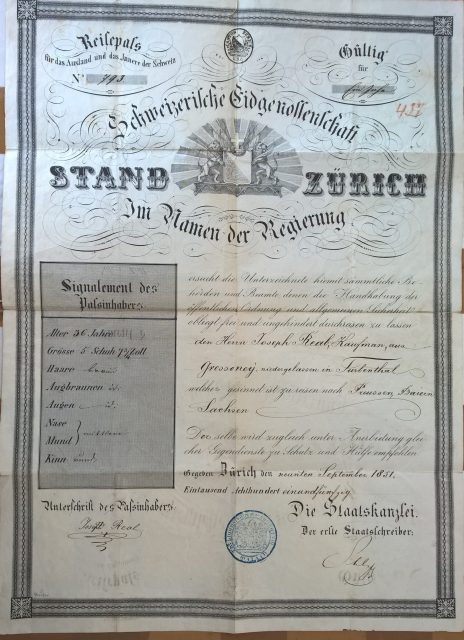 Reisepass
für das Ausland und das Innere der Schweiz
Nº 793
Gültig
für
437
Schweizerische Eidgenossenschaft
STAND ZÜRICH
Im Namen der Regierung
Signalement des
Passinhabers
Alter 36 Jahre
Grösse 5 Schuh Zoll
Haare braun
Augbraunen id.
Augen id.
Nase
Mund } mittlere
Kinn rund
ersucht die Unterzeichnete hiermit sämmtliche Be-
hörden und Beamte denen die Handhabung der
öffentlichen Ordnung und allgemeinen Sicherheit
obliegt frei und ungehindert durchreisen zu lassen
den Herrn Joseph Real, Kaufman, aus
Gressoney, niedergelassen in Turbenthal
welcher gesinnet ist zu reisen nach Preussen Baiern
Sachsen
Derselbe wird zugleich unter Anerbietung glei-
cher Gegendienste zu Schutz und Hülfe empfohlen
Gegeben Zürich den neunten September 1851.
Eintausend Achthundert einundfünfzig
Unterschrift des Passinhabers
Joseph Real
Die Staatskanzlei.
Der erste Staatschreiber: